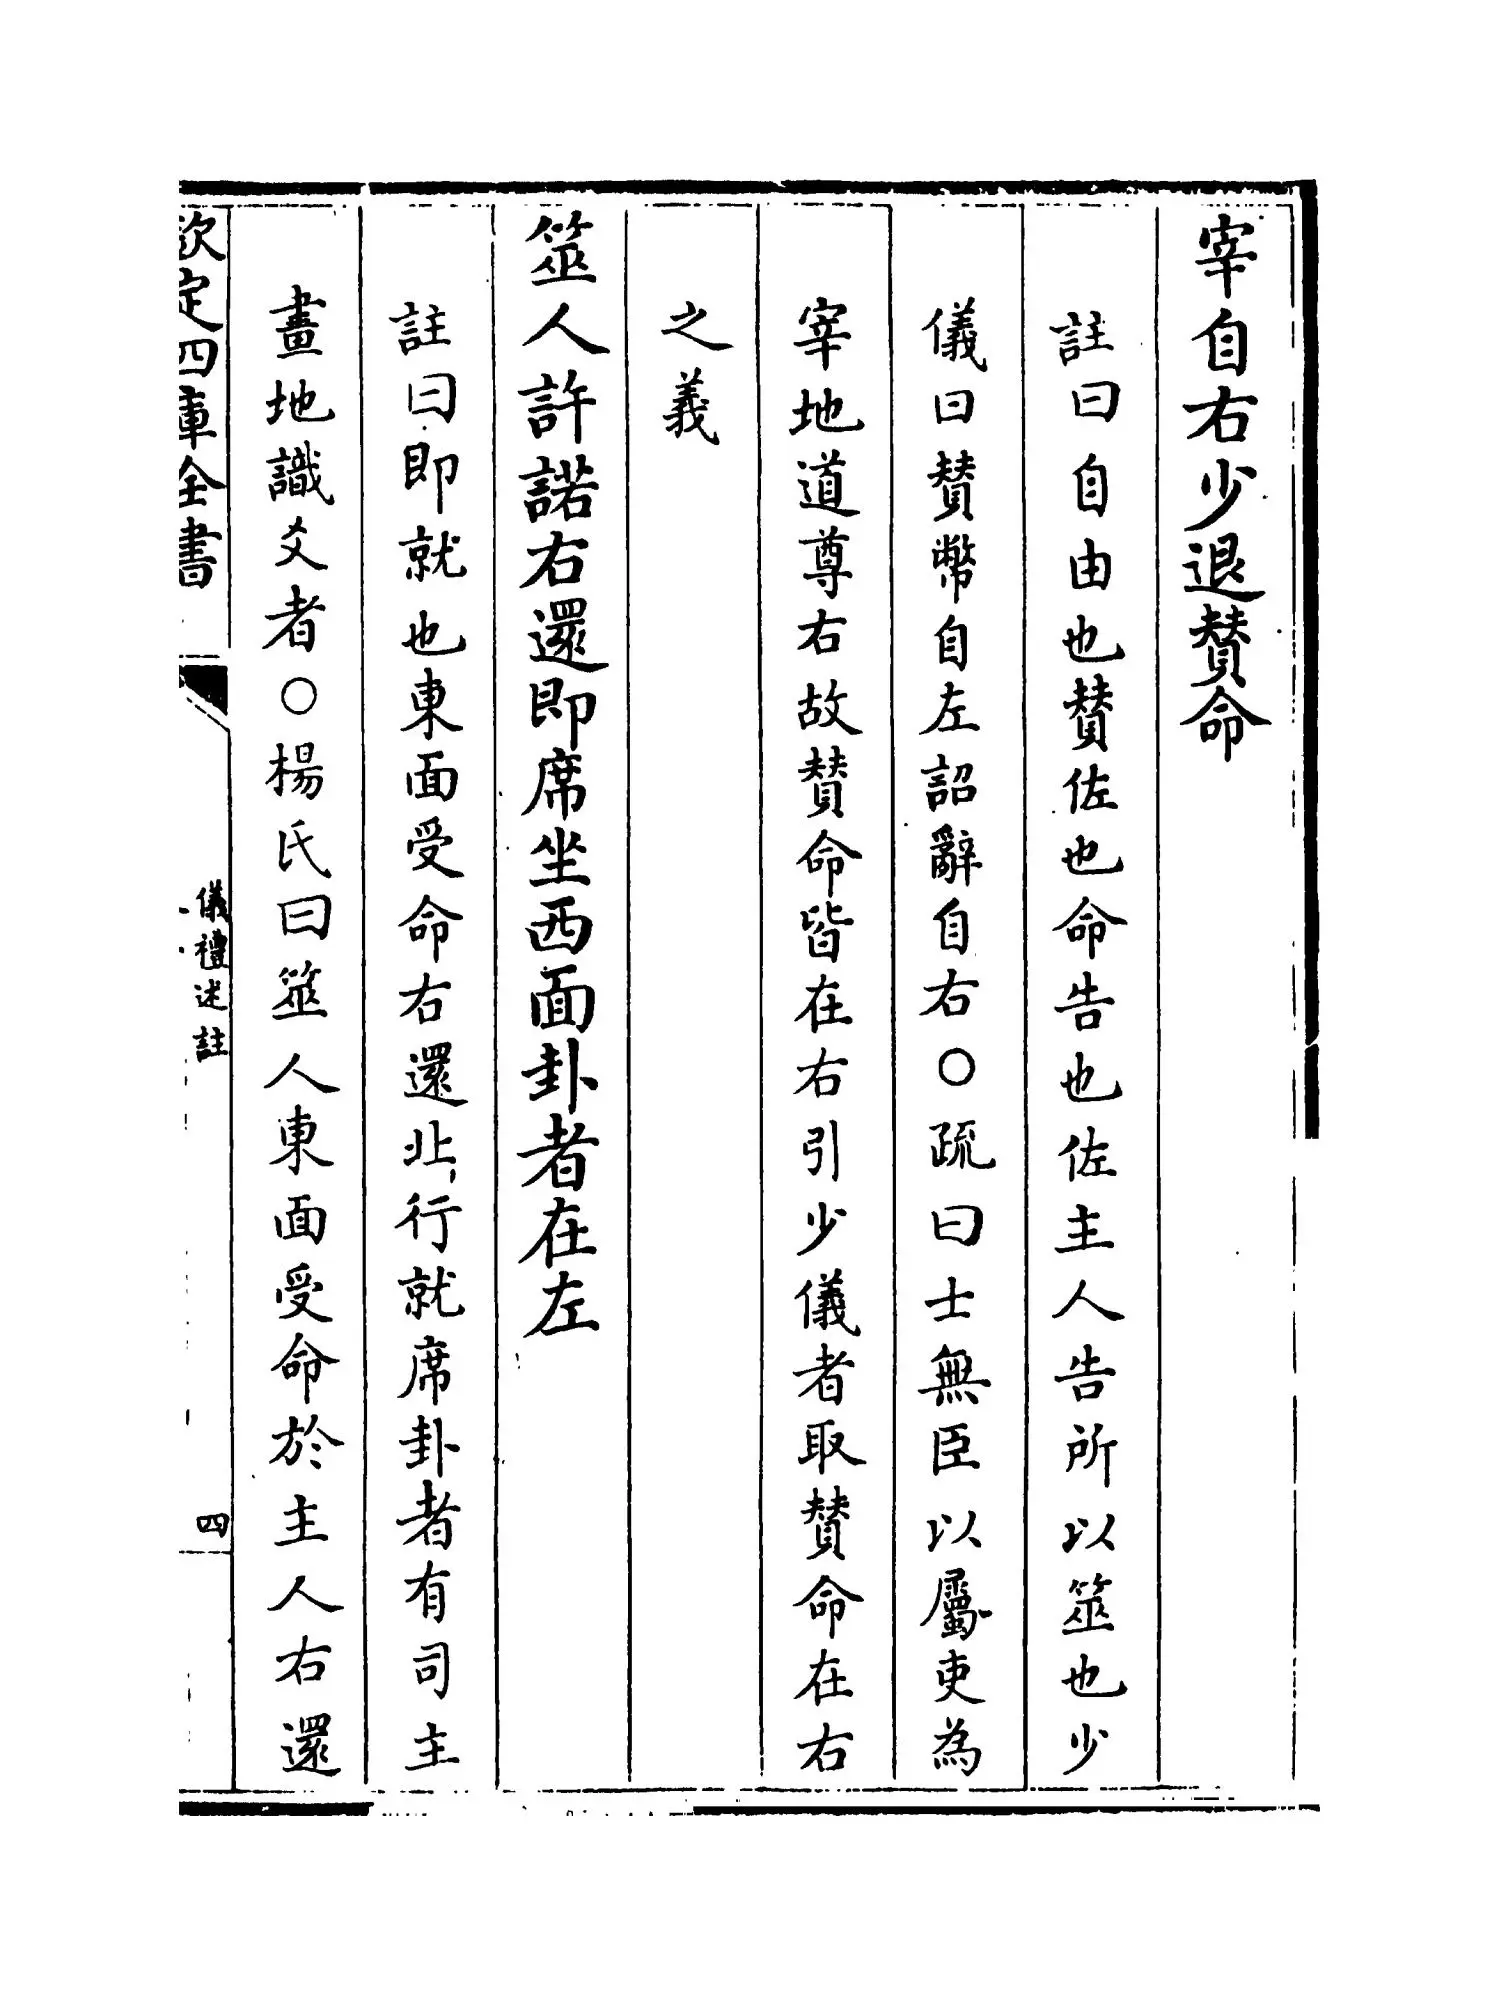 宰自右少退贊命
註曰自由也贊佐也命告也佐主人告所以筮也少
儀曰贊幣自左詔辭自右○疏曰士無臣以屬吏為
宰地道尊右故贊命皆在右引少儀者取贊命在右
之義
筮人許諾右還即席坐西面卦者在左
註曰即就也東面受命右還北行就席卦者有司主
畫地識爻者○楊氏曰筮人東面受命於主人右還
欽定四庫全書
儀禮述註
四